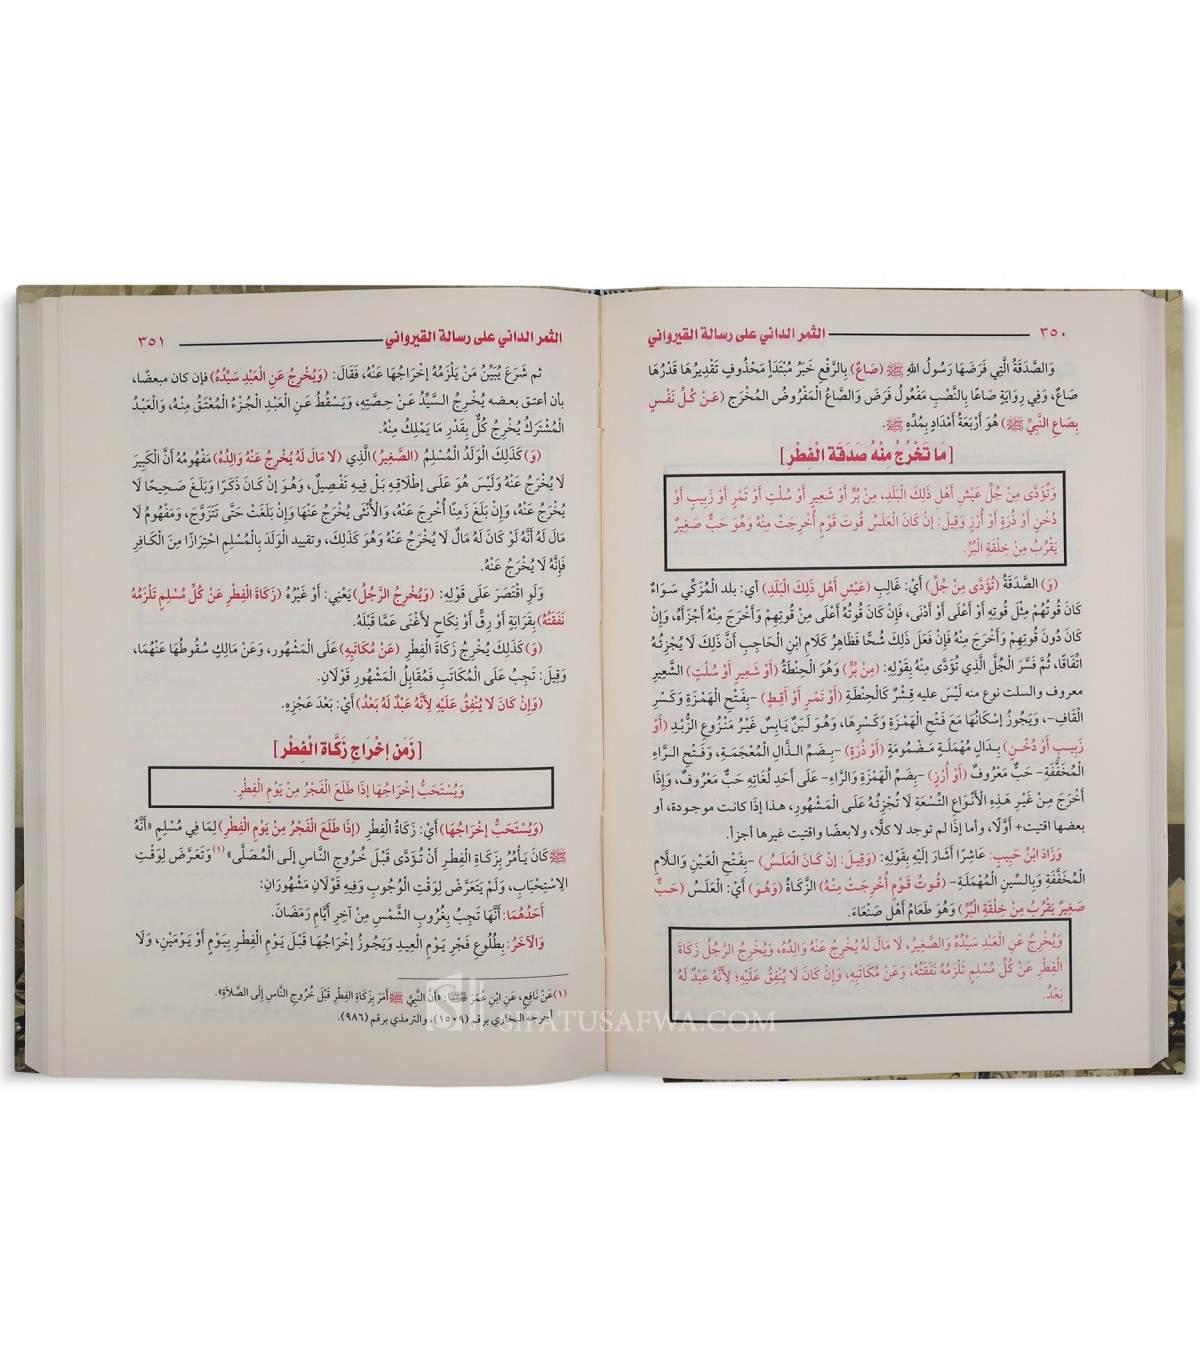 ٣٥٠ الثمر الداني على رسالة القيرواني
وَالصَّدَقَةُ الَّتِي فَرَضَهَا رَسُولُ اللهِ ﷺ (صَاعٌ) بِالرَّفْعِ خَبَرُ مُبْتَدَإٍ مَحْذُوفٍ تَقْدِيرُهَا قَدْرُهَا
صَاعٌ، وَفِي رِوَايَةٍ صَاعًا بِالنَّصْبِ مَفْعُولُ فَرَضَ وَالصَّاعُ الْمَفْرُوضُ الْمُخْرَج (عَنْ كُلِّ نَفْسٍ
بِصَاعِ النَّبِيِّ ﷺ) هُوَ أَرْبَعَةُ أَمْدَادٍ بِمُدِّهِ ﷺ.
[مَا تَخْرُجُ مِنْهُ صَدَقَةُ الْفِطْرِ]
وَتُؤَدَّى مِنْ جُلِّ عَيْشِ أَهْلِ ذَلِكَ الْبَلَدِ، مِنْ بُرٍّ أَوْ شَعِيرٍ أَوْ سُلْتٍ أَوْ تَمْرٍ أَوْ زَبِيبٍ أَوْ
دُخْنٍ أَوْ ذُرَةٍ أَوْ أُرْزٍ وَقِيلَ: إِنْ كَانَ الْعَلَسُ قُوتَ قَوْمٍ أُخْرِجَتْ مِنْهُ وَهُوَ حَبٌّ صَغِيرٌ
يَقْرُبُ مِنْ خِلْقَةِ الْبُرِّ.
(وَ) الصَّدَقَةُ (تُؤَدَّى مِنْ جُلِّ) أَيْ: غَالِبِ (عَيْشِ أَهْلِ ذَلِكَ الْبَلَدِ) أي: بلد الْمُزَكِّي سَوَاءٌ
كَانَ قُوتُهُمْ مِثْلَ قُوتِهِ أَوْ أَعْلَى أَوْ أَدْنَى، فَإِنْ كَانَ قُوتُهُ أَعْلَى مِنْ قُوتِهِمْ وَأَخْرَجَ مِنْهُ أَجْزَأَهُ، وَإِنْ
كَانَ دُونَ قُوتِهِمْ وَأَخْرَجَ مِنْهُ فَإِنْ فَعَلَ ذَلِكَ شُحًّا فَظَاهِرُ كَلَامِ ابْنِ الْحَاجِبِ أَنَّ ذَلِكَ لَا يُجْزِئُهُ
اتِّفَاقًا، ثُمَّ فَسَّرَ الْجُلَّ الَّذِي تُؤَدَّى مِنْهُ بِقَوْلِهِ: (مِنْ بُرٍّ) وَهُوَ الْحِنْطَةُ (أَوْ شَعِيرٍ أَوْ سُلْتٍ) الشَّعِيرِ
معروف والسلت نوع منه لَيْسَ عليه قِشْرٌ كَالْحِنْطَةِ (أَوْ تَمْرٍ أَوْ أَقِطٍ) -بِفَتْحِ الْهَمْزَةِ وَكَسْرِ
الْقَافِ-، وَيَجُوزُ إِسْكَانُهَا مَعَ فَتْحِ الْهَمْزَةِ وَكَسْرِهَا، وَهُوَ لَبَنٌ يَابِسٌ غَيْرُ مَنْزُوعِ الزُّبْدِ (أَوْ
زَبِيبٍ أَوْ دُخْنٍ) بِدَالٍ مُهْمَلَةٍ مَضْمُومَةٍ (أَوْ ذُرَةٍ) -بِضَمِّ الذَّالِ الْمُعْجَمَةِ، وَفَتْحِ الرَّاءِ
الْمُخَفَّفَةِ- حَبٌّ مَعْرُوفٌ (أَوْ أُرْزٍ) -بِضَمِّ الْهَمْزَةِ وَالرَّاءِ- عَلَى أَحَدِ لُغَاتِهِ حَبٌّ مَعْرُوفٌ، وَإِذَا
أَخْرَجَ مِنْ غَيْرِ هَذِهِ الْأَنْوَاعِ التِّسْعَةِ لَا تُجْزِئُهُ عَلَى الْمَشْهُورِ، هذا إذَا كانت موجودة، أو
بعضها اقتيت+ أوَّلًا، وأما إذَا لم توجد لا كلًّا، ولابعضًا واقتيت غيرها أجزأ.
وَزَادَ ابْنُ حَبِيبٍ: عَاشِرًا أَشَارَ إِلَيْهِ بِقَوْلِهِ: (وَقِيلَ: إِنْ كَانَ الْعَلَسُ) -بِفَتْحِ الْعَيْنِ وَاللَّامِ
الْمُخَفَّفَةِ وَبِالسِّينِ الْمُهْمَلَةِ- (قُوتُ قَوْمٍ أُخْرِجَتْ مِنْهُ) الزَّكَاةُ (وَهُوَ) أَيْ: الْعَلَسُ (حَبٌّ
صَغِيرٌ يَقْرُبُ مِنْ خِلْقَةِ الْبُرِّ) وَهُوَ طَعَامُ أَهْلِ صَنْعَاءَ.
وَيُخْرِجُ عَنِ الْعَبْدِ سَيِّدُهُ وَالصَّغِيرُ، لَا مَالَ لَهُ يُخْرِجُ عَنْهُ وَالِدُهُ، وَيُخْرِجُ الرَّجُلُ زَكَاةَ
الْفِطْرِ عَنْ كُلِّ مُسْلِمٍ تَلْزَمُهُ نَفَقَتُهُ، وَعَنْ مُكَاتَبِهِ، وَإِنْ كَانَ لَا يُنْفِقُ عَلَيْهِ؛ لِأَنَّهُ عَبْدٌ لَهُ
بَعْدُ.
الثمر الداني على رسالة القيرواني ٣٥١
ثم شَرَعَ يُبَيِّنُ مَنْ يَلْزَمُهُ إِخْرَاجُهَا عَنْهُ، فَقَالَ: (وَيُخْرِجُ عَنِ الْعَبْدِ سَيِّدُهُ) فإن كان مبعضًا،
بأن أعتق بعضه يُخْرِجُ السَّيِّدُ عَنْ حِصَّتِهِ، وَيَسْقُطُ عَنِ الْعَبْدِ الْجُزْءُ الْمُعْتَقُ مِنْهُ، وَالْعَبْدُ
الْمُشْتَرَكُ يُخْرِجُ كُلٌّ بِقَدْرِ مَا يَمْلِكُ مِنْهُ.
(وَ) كَذَلِكَ الْوَلَدُ الْمُسْلِمُ (الصَّغِيرُ) الَّذِي (لَا مَالَ لَهُ يُخْرِجُ عَنْهُ وَالِدُهُ) مَفْهُومُهُ أَنَّ الْكَبِيرَ
لَا يُخْرَجُ عَنْهُ وَلَيْسَ هُوَ عَلَى إِطْلَاقِهِ بَلْ فِيهِ تَفْصِيلٌ، وَهُوَ إِنْ كَانَ ذَكَرًا وَبَلَغَ صَحِيحًا لَا
يُخْرِجُ عَنْهُ، وَإِنْ بَلَغَ زَمِنًا أُخْرِجَ عَنْهُ، وَالْأُنْثَى يُخْرِجُ عَنْهَا وَإِنْ بَلَغَتْ حَتَّى تَتَزَوَّجَ، وَمَفْهُومُ لَا
مَالَ لَهُ أَنَّهُ لَوْ كَانَ لَهُ مَالٌ لَا يُخْرِجُ عَنْهُ وَهُوَ كَذَلِكَ، وتقييد الْوَلَدَ بِالْمُسْلِمِ احْتِرَازًا مِنَ الْكَافِرِ
فَإِنَّهُ لَا يُخْرِجُ عَنْهُ.
وَلَوِ اقْتَصَرَ عَلَى قَوْلِهِ: (وَيُخْرِجُ الرَّجُلُ) يَعْنِي: أَوْ غَيْرُهُ (زَكَاةَ الْفِطْرِ عَنْ كُلِّ مُسْلِمٍ تَلْزَمُهُ
نَفَقَتُهُ) بِقَرَابَةٍ أَوْ رِقٍّ أَوْ نِكَاحٍ لَأَغْنَى عَمَّا قَبْلَهُ.
(وَ) كَذَلِكَ يُخْرِجُ زَكَاةَ الْفِطْرِ (عَنْ مُكَاتَبِهِ) عَلَى الْمَشْهُورِ، وَعَنْ مَالِكٍ سُقُوطُهَا عَنْهُمَا،
وَقِيلَ: تَجِبُ عَلَى الْمُكَاتَبِ فَمُقَابِلُ الْمَشْهُورِ قَوْلَانِ.
(وَإِنْ كَانَ لَا يُنْفِقُ عَلَيْهِ لِأَنَّهُ عَبْدٌ لَهُ بَعْدُ) أَيْ: بَعْدَ عَجْزِهِ.
[زَمَن إخْرَاجِ زَكَاة الْفِطْرِ]
وَيُسْتَحَبُّ إِخْرَاجُهَا إِذَا طَلَعَ الْفَجْرُ مِنْ يَوْمِ الْفِطْرِ.
(وَيُسْتَحَبُّ إِخْرَاجُهَا) أَيْ: زَكَاةُ الْفِطْرِ (إِذَا طَلَعَ الْفَجْرُ مِنْ يَوْمِ الْفِطْرِ) لِمَا فِي مُسْلِمٍ «أَنَّهُ
ﷺ كَانَ يَأْمُرُ بِزَكَاةِ الْفِطْرِ أَنْ تُؤَدَّى قَبْلَ خُرُوجِ النَّاسِ إِلَى الْمُصَلَّى»(١) وَتَعَرَّضَ لِوَقْتِ
الِاسْتِحْبَابِ، وَلَمْ يَتَعَرَّضْ لِوَقْتِ الْوُجُوبِ وَفِيهِ قَوْلَانِ مَشْهُورَانِ:
أَحَدُهُمَا: أَنَّهَا تَجِبُ بِغُرُوبِ الشَّمْسِ مِنْ آخِرِ أَيَّامِ رَمَضَانَ.
وَالْآخَرُ: بِطُلُوعِ فَجْرِ يَوْمِ الْعِيدِ وَيَجُوزُ إِخْرَاجُهَا قَبْلَ يَوْمِ الْفِطْرِ بِيَوْمٍ أَوْ يَوْمَيْنِ، وَلَا
(١) عَنْ نَافِعٍ، عَنِ ابْنِ عُمَرَ: «أَنَّ النَّبِيَّ ﷺ أَمَرَ بِزَكَاةِ الْفِطْرِ قَبْلَ خُرُوجِ النَّاسِ إِلَى الصَّلَاةِ».
أخرجه البخاري برقم (١٥٠٩)، والترمذي برقم (٩٨٦).
SIFATUSAFWA.COM